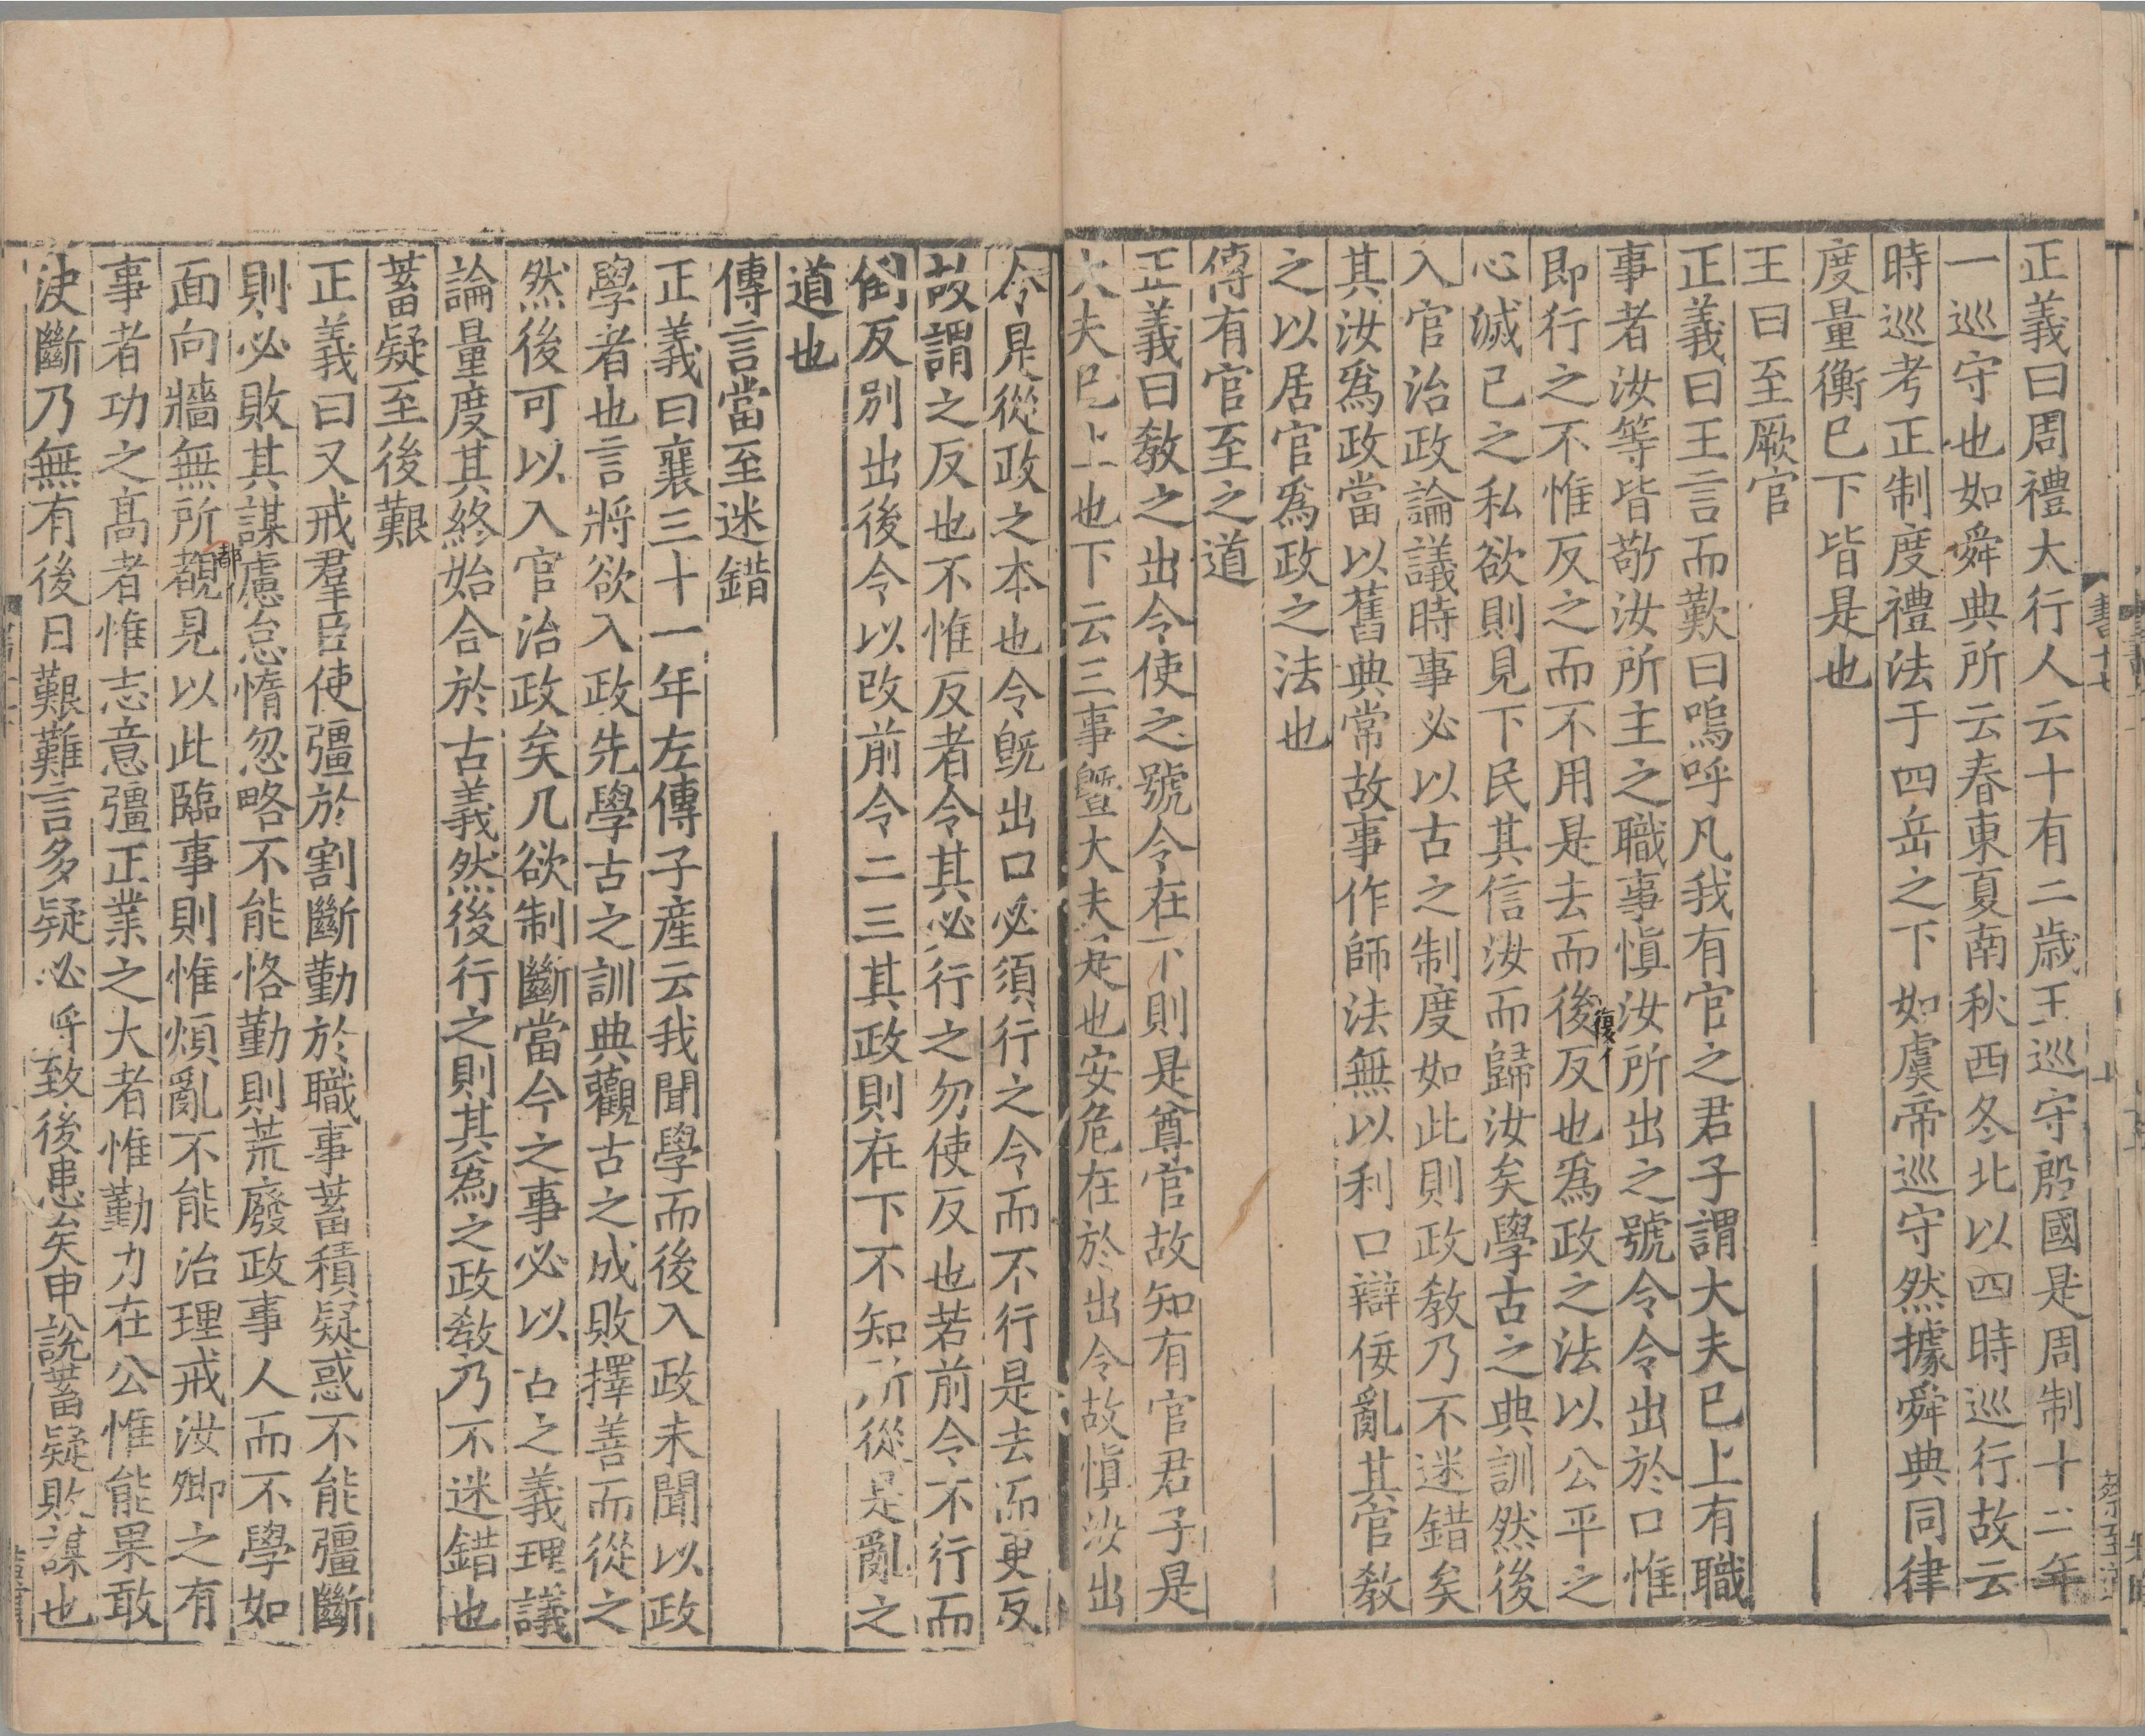 正義曰周禮大行人云十有二歲王巡守殷國是周制十二年
一巡守也如舜典所云春東夏南秋西冬北以四時巡行故云
時巡考正制度禮法于四岳之下如虞帝巡守然據舜典同律
度量衡已下皆是也
王曰至厥官
正義曰王言而歎曰嗚呼凡我有官之君子謂大夫已上有職
事者汝等皆敬汝所主之職事慎汝所出之號令令出於口惟
即行之不惟反之而不用是去而後反也爲政之法以公平之
復
心滅己之私欲則見下民其信汝而歸汝矣學古之典訓然後
入官治政論議時事必以古之制度如此則政教乃不迷錯矣
其汝爲政當以舊典常故事作師法無以利口辯佞亂其官教
之以居官爲政之法也
傳有官至之道
正義曰教之出令使之號令在下則是尊官故知有官君子是
大夫已上也下云三事曁大夫是也安危在於出令故慎汝出
令是從政之本也令旣出口必須行之令而不行是去而更反
故謂之反也不惟反者令其必行之勿使反也若前令不行而
倒反別出後令以改前令二三其政則在下不知所從是亂之
道也
傳言當至迷錯
正義曰襄三十一年左傳子產云我聞學而後入政未聞以政
學者也言將欲入政先學古之訓典觀古之成敗擇善而從之
然後可以入官治政矣凡欲制斷當今之事必以古之義理議
論量度其終始合於古義然後行之則其爲之政教乃不迷錯也
蓄疑至後艱
正義曰又戒羣臣使彊於割斷勤於職事蓄積疑惑不能彊斷
則必敗其謀慮怠惰忽略不能恪勤則荒廢政事人而不學如
都
面向牆無所覩見以此臨事則惟煩亂不能治理戒汝卿之有
事者功之高者惟志意彊正業之大者惟勤力在公惟能果敢
決斷乃無有後日艱難言多疑必將致後患矣申說蓄疑敗謀也